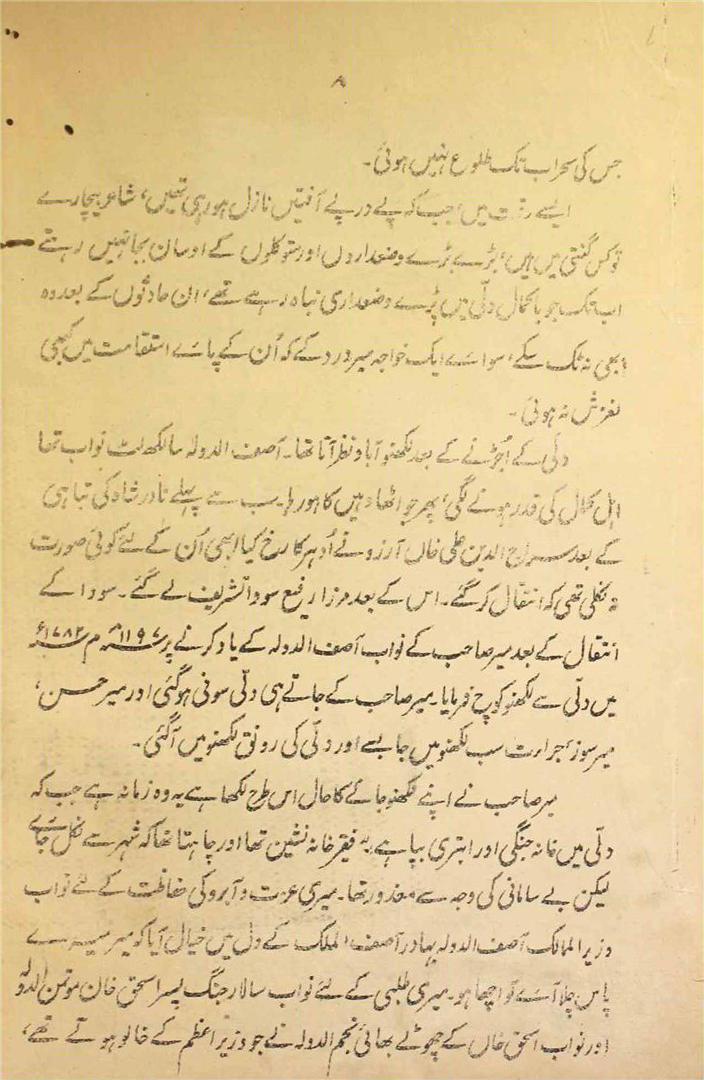 ۸
جس کی سحر اب تک طلوع نہیں ہوئی۔
ایسے وقت میں، جب کہ پے در پے آفتیں نازل ہو رہی تھیں، شاعر بیچارے
تو کس گنتی میں ہیں، بڑے بڑے وضعداروں اور متوکلوں کے اوسان بجا نہیں رہتے
اب تک جو با کمال دلّی میں پڑے وضعداری نباہ رہے تھے، ان حادثوں کے بعد وہ
بھی نہ ٹک سکے، سوائے ایک خواجہ میر درد کے کہ اُن کے پائے استقامت میں کبھی
لغزش نہ ہوئی۔
دلّی کے اُجڑنے کے بعد لکھنؤ آباد نظر آتا تھا۔ آصف الدولہ سا لکھ لٹ نواب تھا
اہل کمال کی قدر ہونے لگی، پھر جو اٹھا وہیں کا ہو رہا۔ سب سے پہلے نادر شاہ کی تباہی
کے بعد سراج الدین علی خاں آرزو نے اُدہر کا رخ کیا ابھی اُن کے لئے کوئی صورت
نہ نکلی تھی کہ انتقال کر گئے۔ اس کے بعد مرزا رفیع سودا تشریف لے گئے۔ سودا کے
انتقال کے بعد میر صاحب کے نواب آصف الدولہ کے یاد کرنے پر ۱۱۹۷ھ م ۱۷۸۲ء
میں دلّی سے لکھنؤ کوچ فرمایا۔ میر صاحب کے جاتے ہی دلّی سونی ہو گئی اور میر حسن،
میر سوز، جراءت سب لکھنؤ میں جا بسے اور دلّی کی رونق لکھنؤ میں آگئی۔
میر صاحب نے اپنے لکھنؤ جانے کا حال اس طرح لکھا ہے یہ وہ زمانہ ہے جب کہ
دلّی میں خانہ جنگی اور ابتری بپا ہے، "فقیر خانہ نشین تھا اور چاہتا تھا کہ شہر سے نکل جائے
لیکن بے سامانی کی وجہ سے معذور تھا۔ میری عزت و آبرو کی حفاظت کے لئے نواب
وزیر الممالک آصف الدولہ بہادر آصف الملک کے دل میں خیال آیا کہ میر میرے
پاس چلا آئے تو اچھا ہو۔ میری طلبی کے لئے نواب سالار جنگ پسر اسحٰق خان موتمن الدولہ
اور نواب اسحٰق خاں کے چھوٹے بھائی نجم الدولہ نے جو وزیر اعظم کے خالو ہوتے تھے،